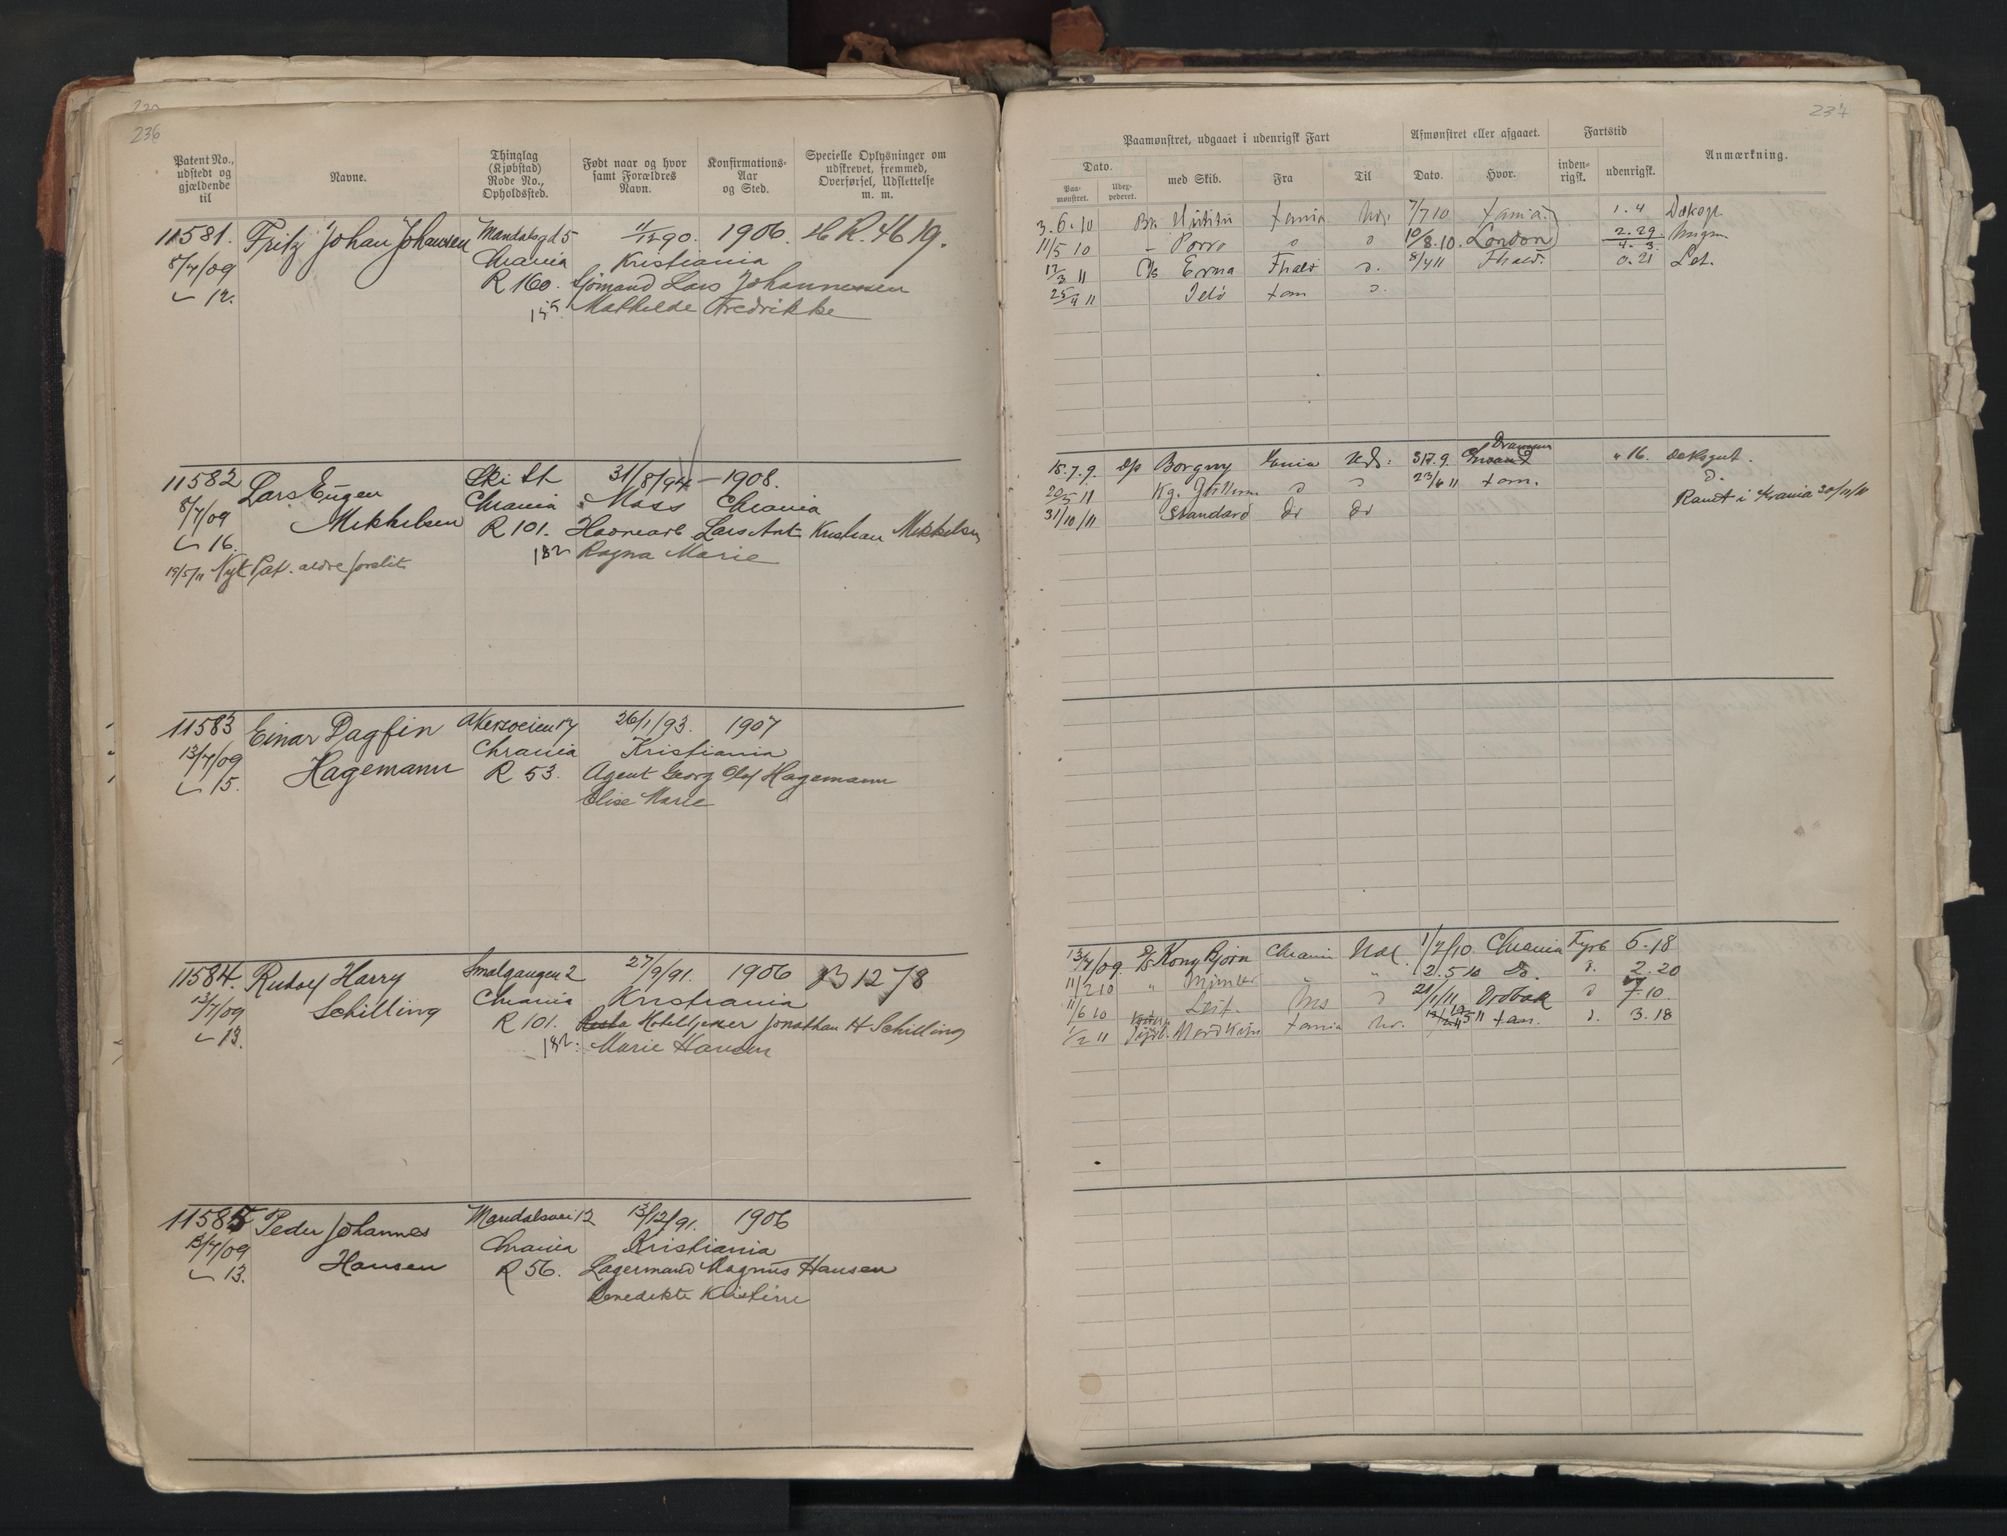 236
Patent No., udstedt og gjældende til
Navne.
Thinglag (Kjøbstad) Rode No., Opholdssted.
Født naar og hvor samt Forældres Navn.
Konfirmations-Aar og Sted.
Specielle Oplysninger om udskrevet, fremmed, Overførsel, Udslettelse m. m.
11581. Fritz Johan Johansen Mandalsgd 5 1/12 90. 1906. H R. 4619.
8/7/09 Chrania Kristiania
12. R 160. Sjömand Lars Johannessen
155. Mathilde Fredrikke
11582 Lars Eugen Ski St 31/8/94 – 1908.
8/7/09 Mikkelsen Chrania Moss Chrania
16. R 101. Havnearb Lars Ant Kristian Mikkelsen
19/5/11 Nyt Pat. ældre forslit 182 Ragna Marie
11583 Einar Dagfin Akersveien 17 26/1/93. 1907
13/7/09 Hagemann Chrania Kristiania
15. R 53. Agent Georg Olaf Hagemann
Elise Marie
11584. Rudolf Harry Smalgangen 2 27/9/91. 1906 B 1278
13/7/09 Schilling Chrania Kristiania
13. R 101. Hoteltjener Jonathan H Schilling
182. Marie Hansen
11585 Peder Johannes Maridalsvei 12 13/12/91. 1906
13/7/09 Hansen Chrania Kristiania
13. R 56. Lagermand Magnus Hansen
Benedikte Kristine
237
Paamønstret, udgaaet i udenrigsk Fart
Afmønstret eller afgaaet.
Fartstid
Anmærkning.
Dato.
Paa-mønstret.
Udex-pederet.
med Skib.
Fra
Til
Dato.
Hvor.
inden-rigsk.
udenrigsk.
3.6.10 7/7 10 1.4
11/5 10 Porro 10/8.10. London 2.29.
4.3.
12/3 11 Erma Fhald 8/4 11 Fhald. 0.21 Let.
25/4 11
Drammen
15.7.9. Borgny Uds: 31.7.9. 16. Deksgut.
20/5 11 Kg. 23/6 11
31/10/11 Standard Rømt i Krania 30/11/11
13/7/09. Kong Bjørn Chrania Udl. 1/2/10. Chrania Fyrb 5.18
11/2 10 2.5 10 Do. 2.20
11/6 10 Leif. 21/1/11 Drøbak 7.10.
1/2 11 Nordkyn 3.18